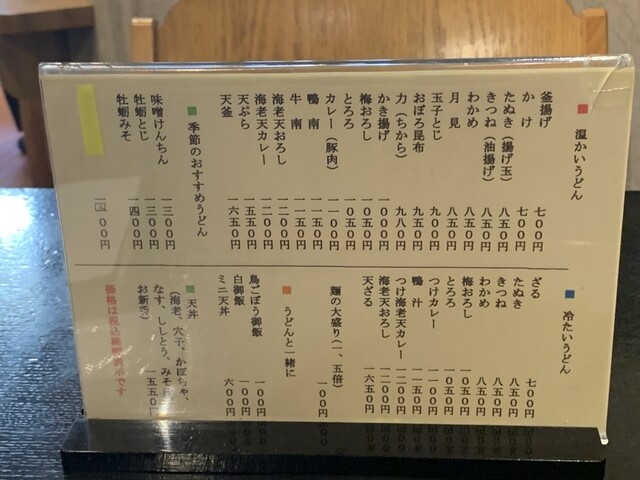 温かいうどん
釜揚げ 七〇〇円
かけ 七〇〇円
たぬき（揚げ玉） 八五〇円
きつね（油揚げ） 八五〇円
わかめ 八五〇円
月見 八五〇円
玉子とじ 九〇〇円
おぼろ昆布 九五〇円
力（ちから） 九八〇円
かき揚げ 一〇〇〇円
梅おろし 一〇五〇円
とろろ 一〇五〇円
カレー（豚肉） 一一〇〇円
鴨南 一一五〇円
牛南 一一五〇円
海老天おろし 一二〇〇円
海老天カレー 一二〇〇円
天ぷら 一五五〇円
天釜 一六五〇円
季節のおすすめうどん
味噌けんちん 一三〇〇円
牡蛎とじ 一三〇〇円
牡蛎みそ 一四〇〇円
冷たいうどん
ざる 七〇〇円
たぬき 八五〇円
きつね 八五〇円
わかめ 八五〇円
梅おろし 一〇五〇円
とろろ 一〇五〇円
つけカレー 一一〇〇円
鴨汁 一一五〇円
つけ海老天カレー 一二〇〇円
海老天おろし 一二〇〇円
天ざる 一六五〇円
麺の大盛り（一、五倍） 一〇〇円
うどんと一緒に
鳥ごぼう御飯
白御飯
ミニ天丼 六〇〇円
天丼
（海老、穴子、かぼちゃ、
なす、ししとう、みそ
お新香） 一五五〇円
価格は税込総額表示です